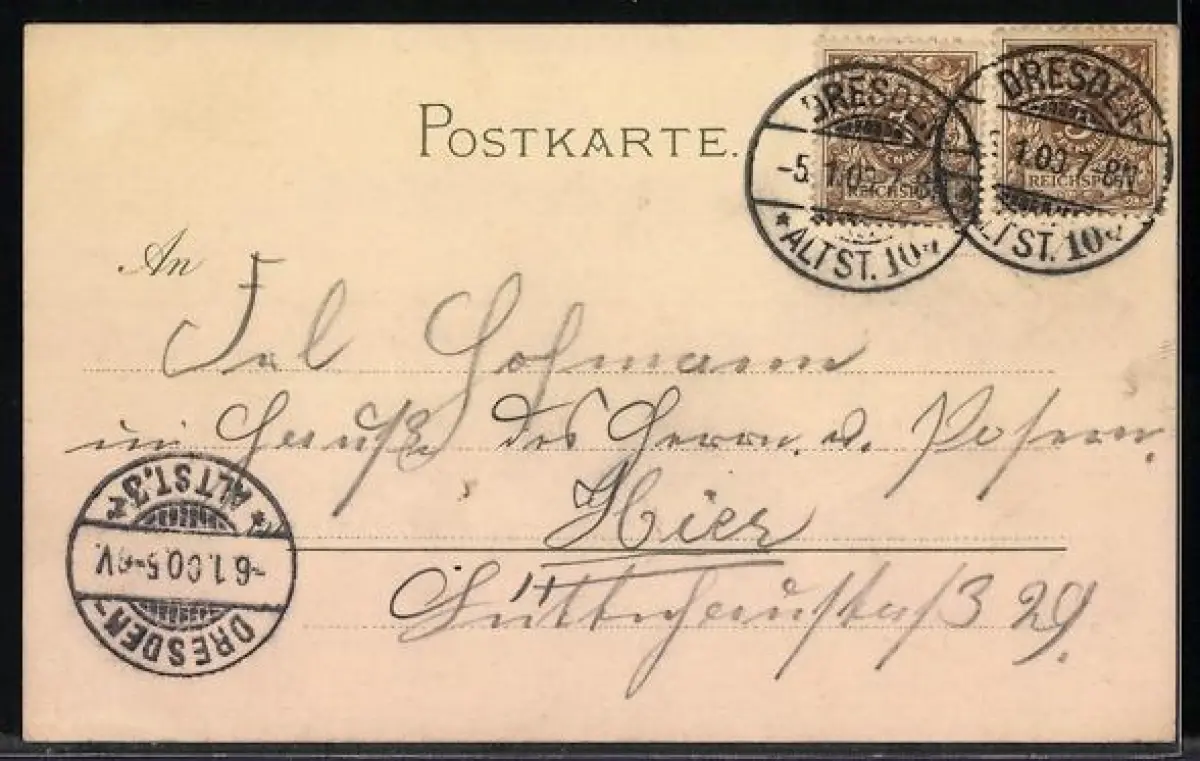 POSTKARTE.
DRESDEN
-5. 1.00 7-8N
* ALTST. 10d
3
PFENNIG
REICHSPOST
DRESDEN
1.00 7-8N
ALTST. 10d
3
PFENNIG
REICHSPOST
An
Frl Hofmann
im Hause des Herrn v. Posern.
Hier
29.
DRESDEN-
-6.1.00 5-6V.
* ALTST. 3